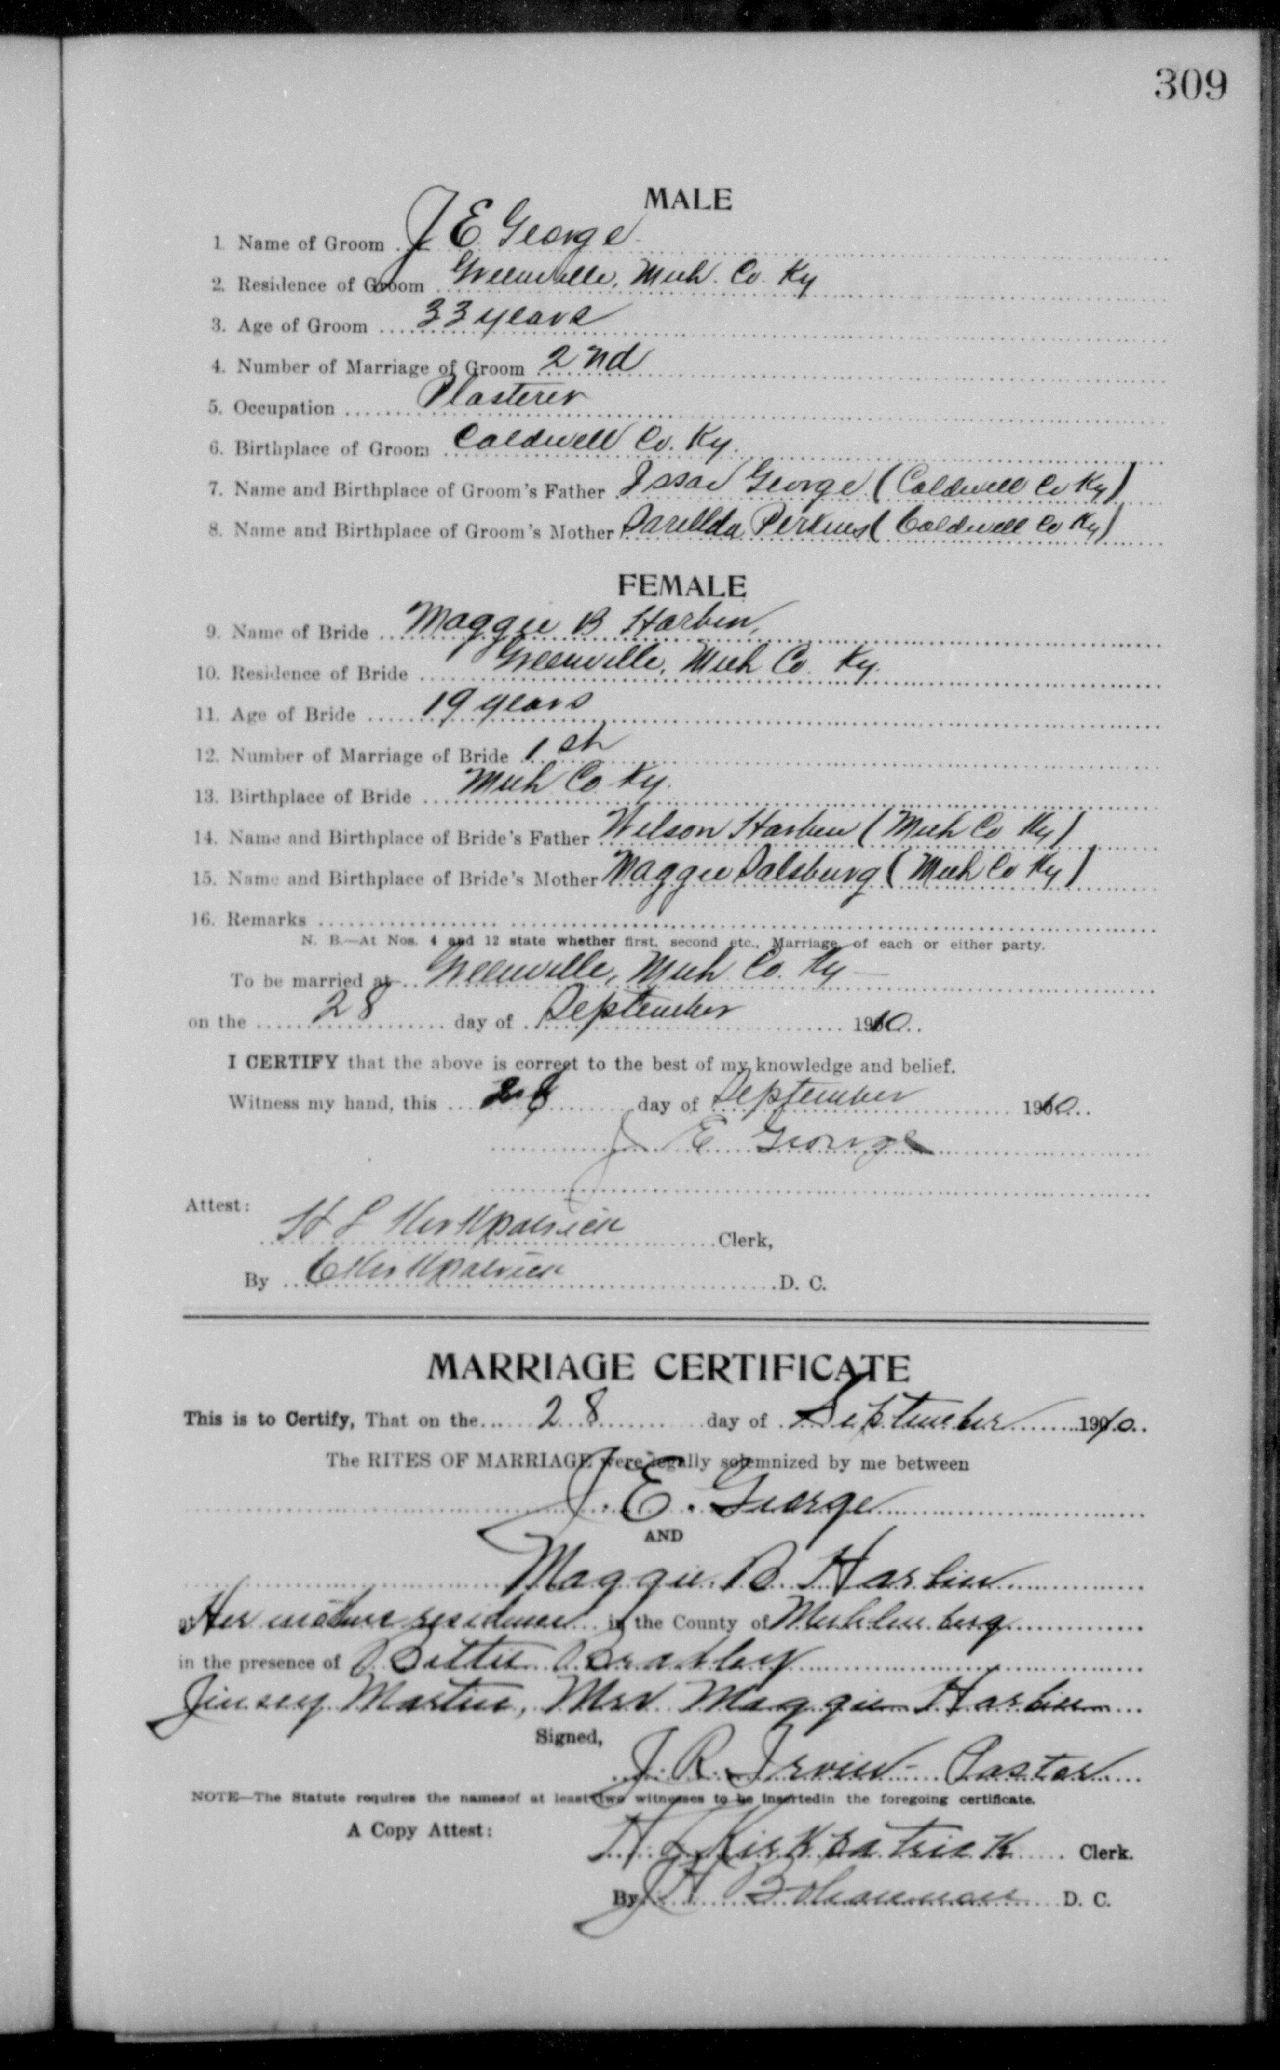 309
MALE
1. Name of Groom J E George
2. Residence of Groom Greenville, Muh. Co Ky
3. Age of Groom 33 years
4. Number of Marriage of Groom 2nd
5. Occupation Plasterer
6. Birthplace of Groom Caldwell Co. Ky.
7. Name and Birthplace of Groom's Father George (Caldwell Co Ky)
8. Name and Birthplace of Groom's Mother Perkins (Caldwell Co Ky)
FEMALE
9. Name of Bride Maggie B Harbin,
10. Residence of Bride Greenville, Muh Co. Ky.
11. Age of Bride 19 years
12. Number of Marriage of Bride 1st
13. Birthplace of Bride Muh Co. Ky.
14. Name and Birthplace of Bride's Father Wilson Harbin (Muh Co Ky)
15. Name and Birthplace of Bride's Mother Maggie Salsburg (Muh Co Ky)
16. Remarks
N. B.—At Nos. 4 and 12 state whether first, second etc., Marriage of each or either party.
To be married at Greenville, Muh. Co. Ky—
on the 28 day of September 1910
I CERTIFY that the above is correct to the best of my knowledge and belief.
Witness my hand, this 28 day of September 1910
J E George
Attest:
H L Kirkpatrick Clerk,
By C Kirkpatrick D. C.
MARRIAGE CERTIFICATE
This is to Certify, That on the 28 day of September 1910
The RITES OF MARRIAGE were legally solemnized by me between
J. E. George
AND
Maggie B Harbin
at Her mothers residence in the County of Muhlenberg
in the presence of Bettie Bradley
Jinsey Martin, Mrs Maggie Harbin
Signed,
J. R. Irvin - Pastor
NOTE—The Statute requires the namesof at least two witnesses to be insertedin the foregoing certificate.
A Copy Attest: H L Kirkpatrick Clerk.
By J H Bohannan D. C.